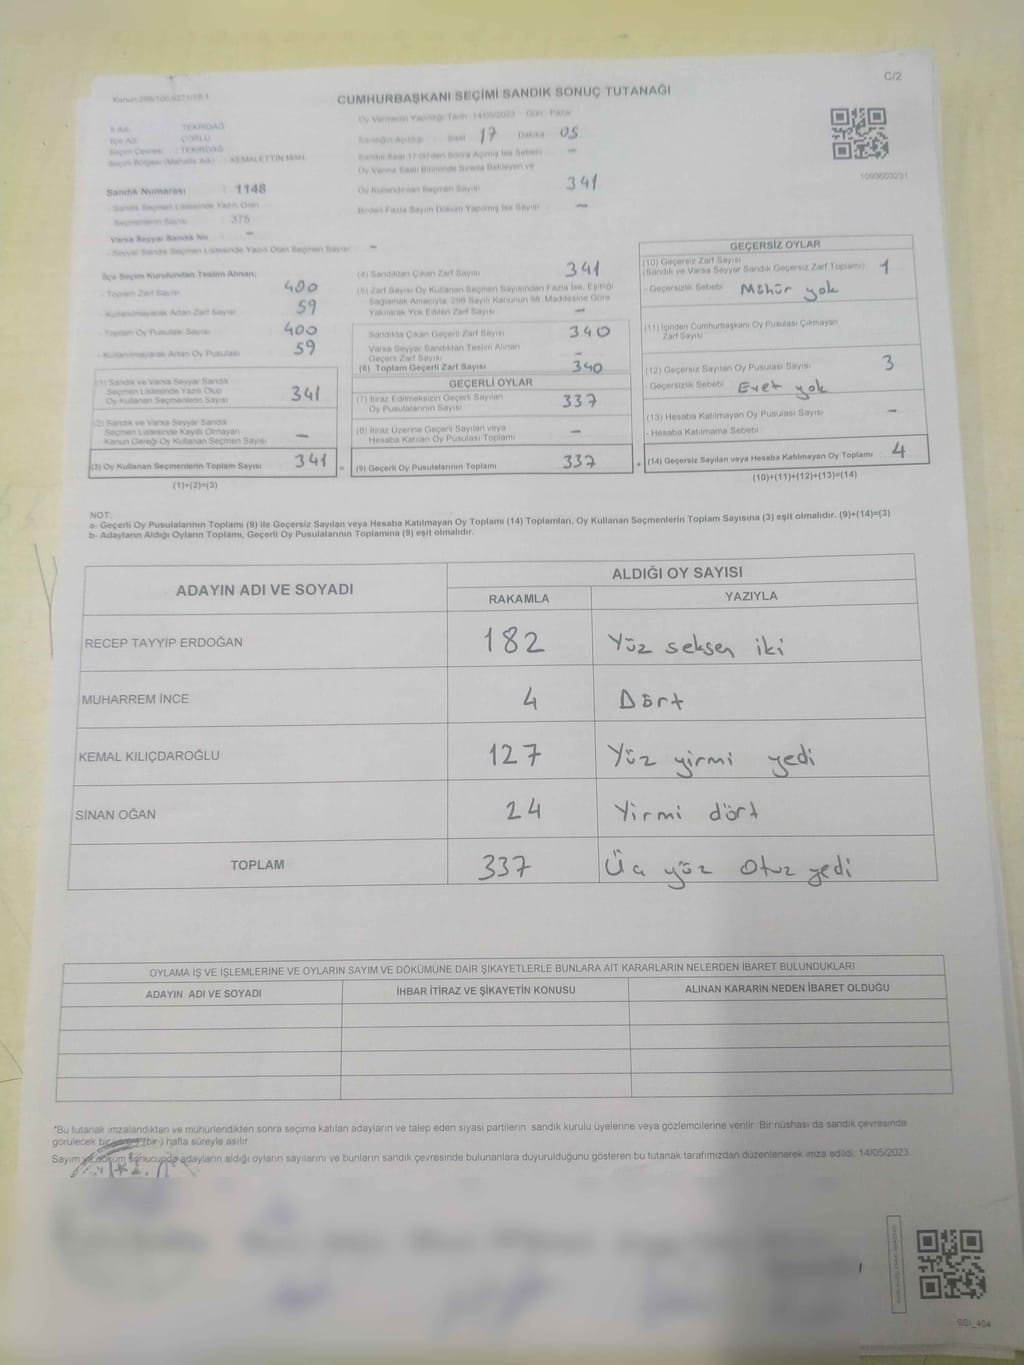 C/2
Kanun:298/100,6271/18-1
CUMHURBAŞKANI SEÇİMİ SANDIK SONUÇ TUTANAĞI
Oy Vermenin Yapıldığı Tarih: 14/05/2023 Gün: Pazar
İl Adı : TEKİRDAĞ
İlçe Adı : ÇORLU
Seçim Çevresi : TEKİRDAĞ
Seçim Bölgesi (Mahalle Adı) : KEMALETTİN MAH.
Sandığın Açıldığı Saat 17 Dakika 05
Sandık Saat 17.00'den Sonra Açılmış İse Sebebi –
Oy Verme Saati Bitiminde Sırada Bekleyen ve
Oy Kullandırılan Seçmen Sayısı 341
Birden Fazla Sayım Döküm Yapılmış İse Sayısı –
1093603231
Sandık Numarası : 1148
- Sandık Seçmen Listesinde Yazılı Olan
Seçmenlerin Sayısı : 375
Varsa Seyyar Sandık No –
- Seyyar Sandık Seçmen Listesinde Yazılı Olan Seçmen Sayısı –
İlçe Seçim Kurulundan Teslim Alınan;
- Toplam Zarf Sayısı 400
- Kullanılmayarak Artan Zarf Sayısı 59
- Toplam Oy Pusulası Sayısı 400
- Kullanılmayarak Artan Oy Pusulası 59
(1) Sandık ve Varsa Seyyar Sandık
Seçmen Listesinde Yazılı Olup
Oy Kullanan Seçmenlerin Sayısı 341
(2) Sandık ve Varsa Seyyar Sandık
Seçmen Listesinde Kayıtlı Olmayan
Kanun Gereği Oy Kullanan Seçmen Sayısı –
(3) Oy Kullanan Seçmenlerin Toplam Sayısı 341 =
(1)+(2)=(3)
(4) Sandıktan Çıkan Zarf Sayısı 341
(5) Zarf Sayısı Oy Kullanan Seçmen Sayısından Fazla İse, Eşitliği
Sağlamak Amacıyla; 298 Sayılı Kanunun 98. Maddesine Göre
Yakılarak Yok Edilen Zarf Sayısı –
Sandıkta Çıkan Geçerli Zarf Sayısı 340
Varsa Seyyar Sandıktan Teslim Alınan
Geçerli Zarf Sayısı –
(6) Toplam Geçerli Zarf Sayısı 340
GEÇERLİ OYLAR
(7) İtiraz Edilmeksizin Geçerli Sayılan
Oy Pusulalarının Sayısı 337
(8) İtiraz Üzerine Geçerli Sayılan veya
Hesaba Katılan Oy Pusulası Toplamı –
(9) Geçerli Oy Pusulalarının Toplamı 337 +
GEÇERSİZ OYLAR
(10) Geçersiz Zarf Sayısı
(Sandık ve Varsa Seyyar Sandık Geçersiz Zarf Toplamı) 1
- Geçersizlik Sebebi Mühür yok
(11) İçinden Cumhurbaşkanı Oy Pusulası Çıkmayan
Zarf Sayısı
(12) Geçersiz Sayılan Oy Pusulası Sayısı 3
- Geçersizlik Sebebi Evet yok
(13) Hesaba Katılmayan Oy Pusulası Sayısı –
- Hesaba Katılmama Sebebi
(14) Geçersiz Sayılan veya Hesaba Katılmayan Oy Toplamı 4
(10)+(11)+(12)+(13)=(14)
NOT:
a- Geçerli Oy Pusulalarının Toplamı (9) ile Geçersiz Sayılan veya Hesaba Katılmayan Oy Toplamı (14) Toplamları, Oy Kullanan Seçmenlerin Toplam Sayısına (3) eşit olmalıdır. (9)+(14)=(3)
b- Adayların Aldığı Oyların Toplamı, Geçerli Oy Pusulalarının Toplamına (9) eşit olmalıdır.
ADAYIN ADI VE SOYADI
ALDIĞI OY SAYISI
RAKAMLA YAZIYLA
RECEP TAYYİP ERDOĞAN 182 Yüz seksen iki
MUHARREM İNCE 4 Dört
KEMAL KILIÇDAROĞLU 127 Yüz yirmi yedi
SİNAN OĞAN 24 Yirmi dört
TOPLAM 337 Üç yüz Otuz yedi
OYLAMA İŞ VE İŞLEMLERİNE VE OYLARIN SAYIM VE DÖKÜMÜNE DAİR ŞİKAYETLERLE BUNLARA AİT KARARLARIN NELERDEN İBARET BULUNDUKLARI
ADAYIN ADI VE SOYADI İHBAR İTİRAZ VE ŞİKAYETİN KONUSU ALINAN KARARIN NEDEN İBARET OLDUĞU
*Bu tutanak imzalandıktan ve mühürlendikten sonra seçime katılan adayların ve talep eden siyasi partilerin sandık kurulu üyelerine veya gözlemcilerine verilir. Bir nüshası da sandık çevresinde
görülecek bir yere 1 (bir) hafta süreyle asılır.
Sayım ve döküm sonucunda adayların aldığı oyların sayılarını ve bunların sandık çevresinde bulunanlara duyurulduğunu gösteren bu tutanak tarafımızdan düzenlenerek imza edildi. 14/05/2023
SSİ_404